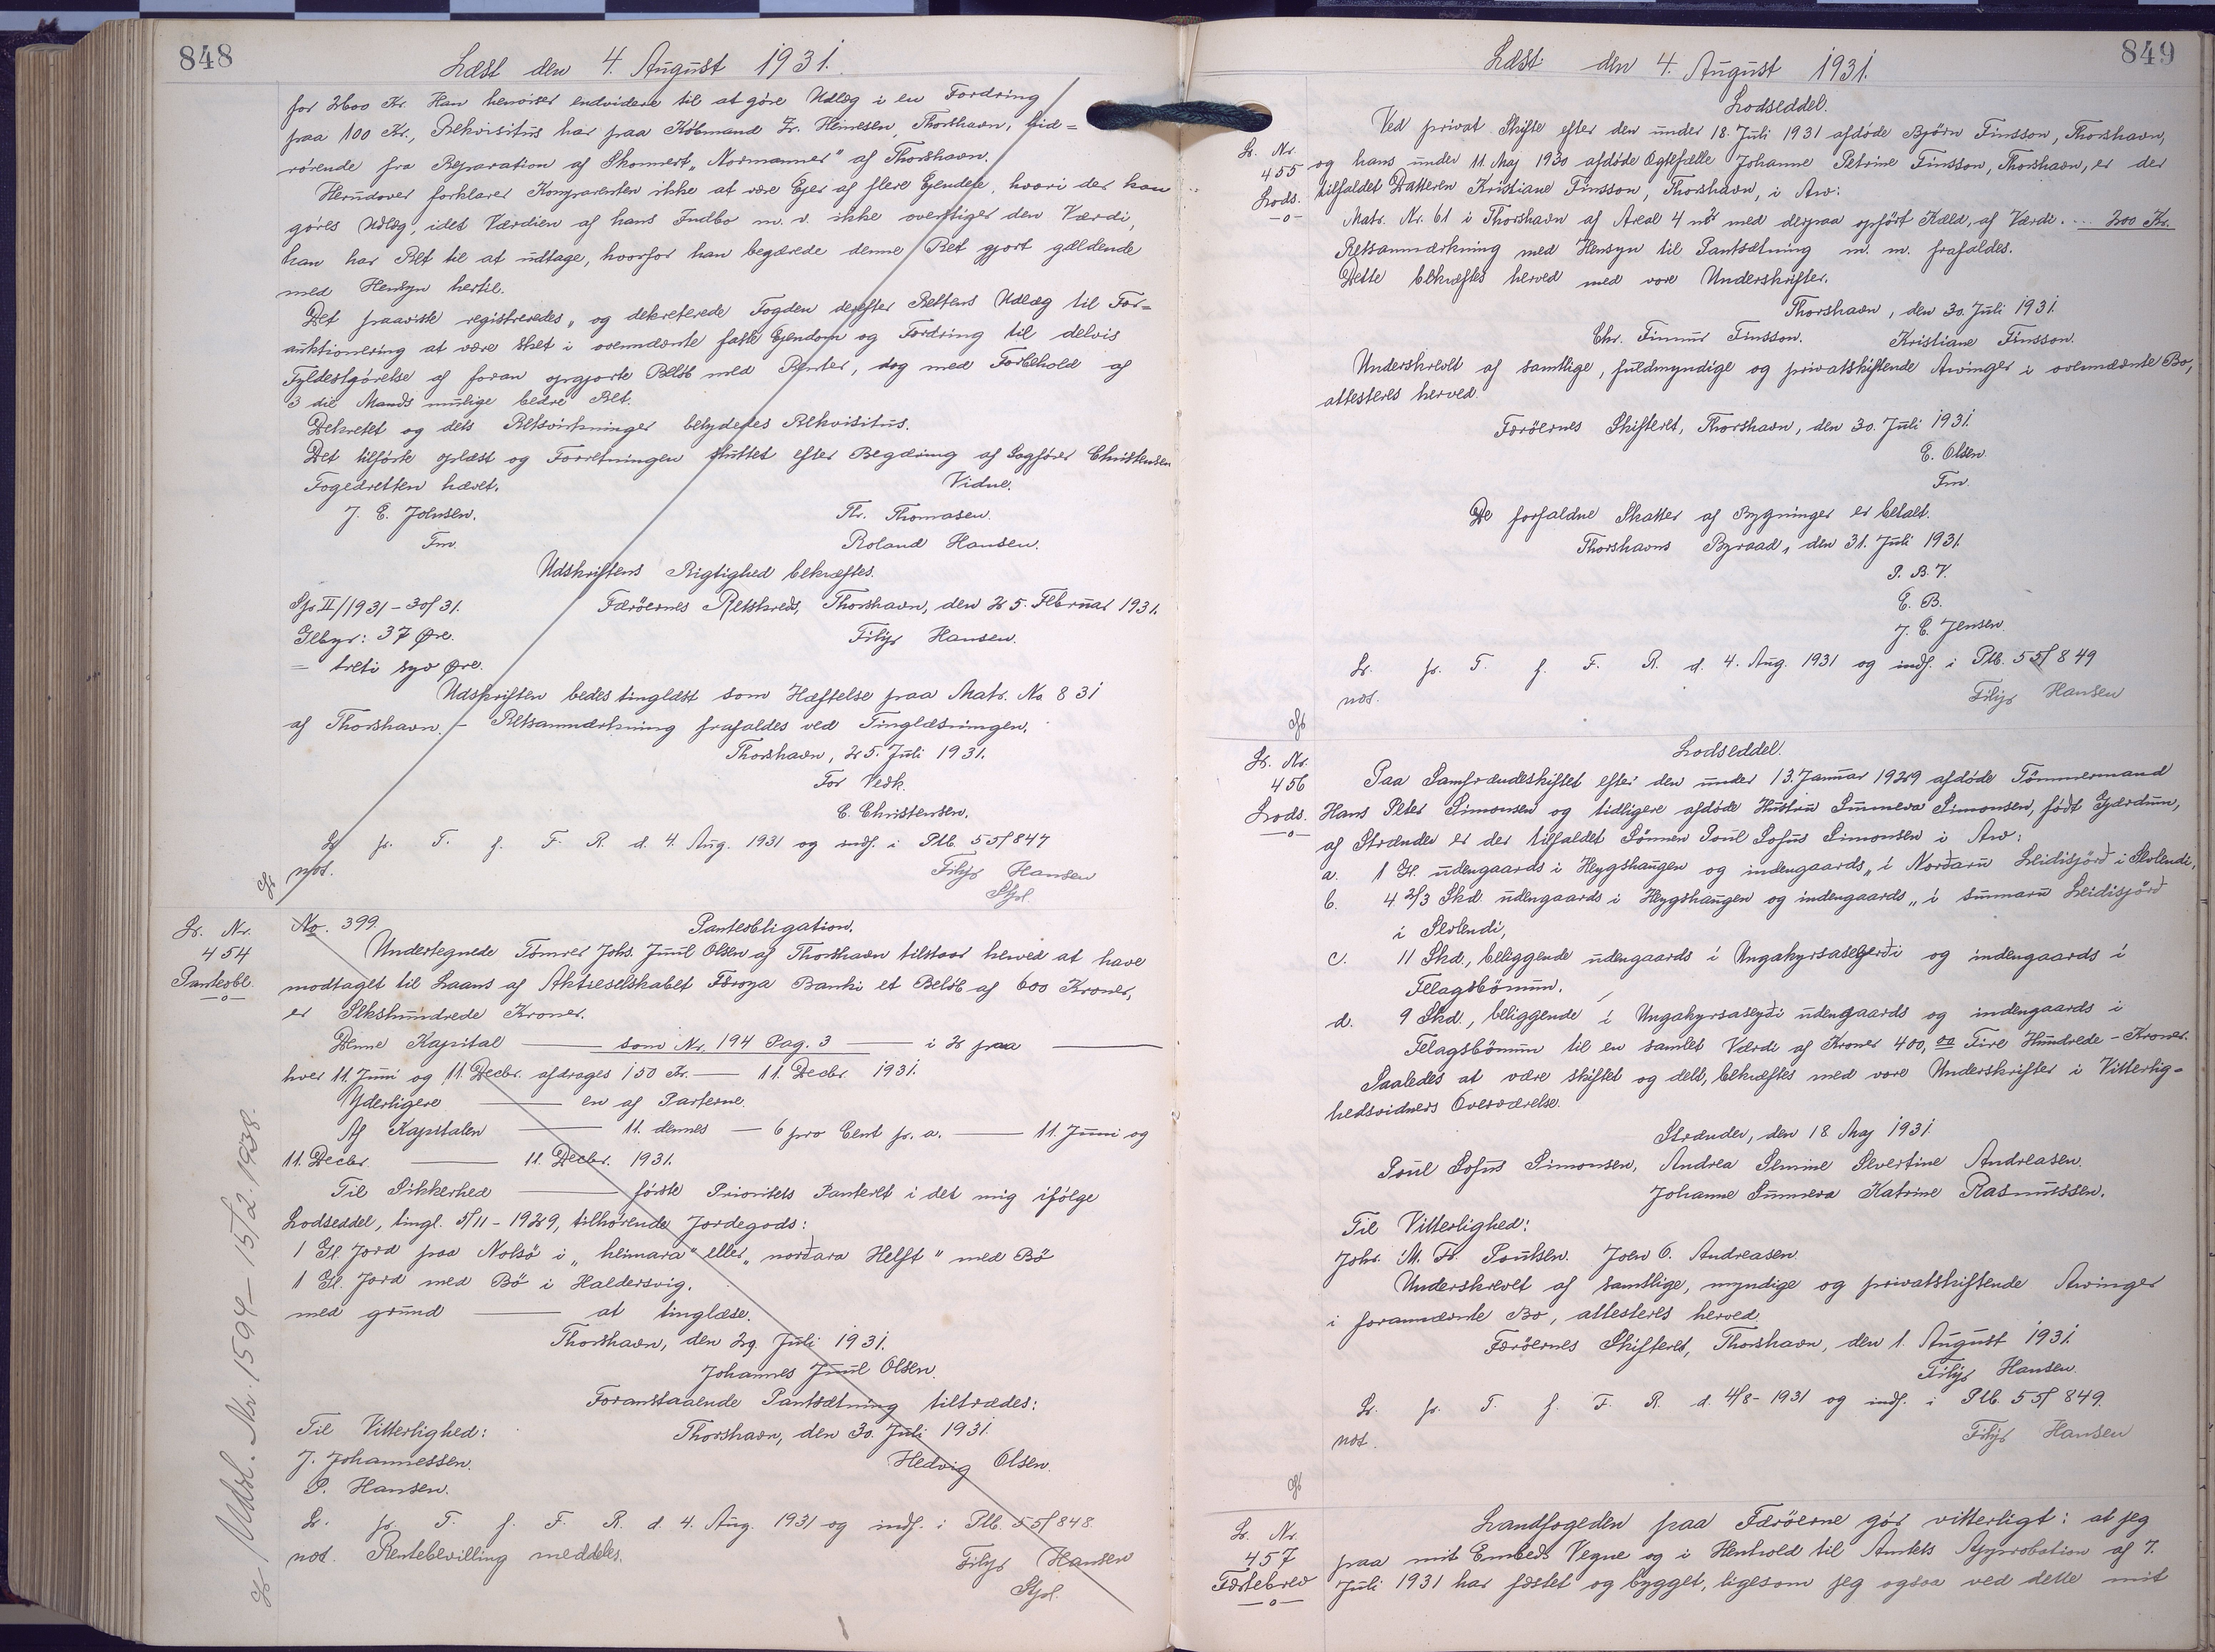 848
Læst den 4. August 1931.
for 2600 Kr. Han henviser endvidere til at göre Udlæg i en Fordring
paa 100 Kr., Rekvisitus har paa Köbmand Zr. Heinesen, Thorshavn, hid=
rörende fra Reparation af Skonnert „Normanner" af Thorshavn.
Herudover forklarer Komparenten ikke at være Ejer af flere Ejendele, hvori der kan
göres Udlæg, idet Værdien af hans Indbo m. v. ikke overstiger den Værdi,
han har Ret til at udtage, hvorfor han begærede denne Ret gjort gældende
med Hensyn hertil.
Det paaviste registreredes, og dekreterede Fogden derefter Rettens Udlæg til For=
auktionering at være sket i ovennævnte faste Ejendom og Fordring til delvis
Fyldestgörelse af foran opgjorte Belöb med Renter, dog med Forbehold af
3 die Mands mulige bedre Ret.
Dekretet og dets Retsvirkninger betydedes Rekvisitus.
Det tilförte oplæst og Forretningen sluttet efter Begæring af Sagförer Christensen
Fogedretten hævet.
Vidne.
J. E. Johnsen.
Th. Thomasen.
Fm.
Roland Hansen.
Udskriftens Rigtighed bekræftes.
Sp. II/1931 - 30/31.
Færöernes Retskreds, Thorshavn, den 25. Februar 1931.
Gebyr: 37 Øre.
Filip Hansen.
= treti syv Øre.
Udskriften bedes tinglæst som Hæftelse paa Matr. No 831
af Thorshavn. - Retsanmærkning frafaldes ved Tinglæsningen.
Thorshavn, 25. Juli 1931.
For Vedk.
C. Christensen.
Lr. pr. T. f. F. R. d. 4. Aug. 1931 og indf. i Ptb. 55/847
not.
Filip Hansen
Stfd.
Lr. Nr.
454
Pantobl.
No. 399.
Panteobligation.
Undertegnede Tömrer Johs. Juul Olsen af Thorshavn tilstaar herved at have
modtaget til Laans af Aktieselskabet Föroya Banki et Belöb af 600 Kroner,
er Sekshundrede Kroner.
Denne Kapital — som Nr. 194 Pag. 3 — i 2 paa —
hver 11. Juni og 11. Decbr. afdrages 150 Kr. — 11. Decbr. 1931.
Yderligere — en af Parterne.
Af Kapitalen — 11. dennes — 6 pro Cent p. a. — 11. Juni og
11. Decbr. — 11. Decbr. 1931.
Til Sikkerhed — förste Prioritets Panteret i det mig ifölge
Lodseddel, tingl. 5/11 - 1929, tilhörende Jordegods:
1 Gl. Jord paa Nolsö i „heimara" eller „norðara Helft" med Bö
1 Gl. Jord med Bö i Haldersvig.
med grund — at tinglæse.
Thorshavn, den 29. Juli 1931.
Johannes Juul Olsen.
Foranstaaende Pantsætning tiltrædes:
Til Vitterlighed:
Thorshavn, den 30. Juli 1931.
J. Johannessen.
Hedvig Olsen.
P. Hansen.
Lr. pr. T. f. F. R. d. 4. Aug. 1931 og indf. i Ptb. 55/848.
not. Rentebevilling meddeles.
Filip Hansen
Stfd.
Udsl. Nr. 1594 - 15/2 1938.
849
Læst den 4. August 1931.
Lodseddel.
Lr. Nr.
455
Lods.
Ved privat Skifte efter den under 18. Juli 1931 afdöde Björn Finsson, Thorshavn,
og hans under 11. Maj 1930 afdöde Ægtefælle Johanne Petrine Finsson, Thorshavn, er der
tilfaldet Datteren Kristiane Finsson, Thorshavn, i Arv:
Matr. Nr. 61 i Thorshavn af Areal 4 m² med derpaa opfört Kæld, af Værdi. ... 200 Kr.
Retsanmærkning med Hensyn til Pantsætning m. m. frafaldes.
Dette bekræftes herved med vore Underskrifter.
Thorshavn, den 30. Juli 1931.
Chr. Finnur Finsson. Kristiane Finsson.
Underskrevet af samtlige, fuldmyndige og privatskiftende Arvinger i ovennævnte Bo,
attesteres herved.
Færöernes Skifteret, Thorshavn, den 30. Juli 1931.
E. Olsen.
Fm.
De forfaldne Skatter af Bygninger er betalt.
Thorshavns Byraad, den 31. Juli 1931.
P. B. V.
E. B.
J. C. Jensen.
Lr. pr. T. f. F. R. d. 4. Aug. 1931 og indf. i Ptb. 55/849
not.
Filip Hansen
Lr. Nr.
456
Lods.
Lodseddel.
Paa Samfrændeskiftet efter den under 13. Januar 1929 afdöde Tömmermand
Hans Peter Simonsen og tidligere afdöde Hustru Sunneva Simonsen, födt Gærdum,
af Strænder er der tilfaldet Sönnen Poul Sofus Simonsen i Arv:
a. 1 Gl. udengaards i Heygshaugen og indengaards „i Norðaru Leidisjörð i Stolendi,
b. 4 2/3 Skd. udengaards i Heygshaugen og indengaards „i sunnaru Leidisjörð
i Stolendi,
c. 11 Skd., beliggende udengaards i Ungakyrsaseyði og indengaards i
Felagsbönum.
d. 9 Skd., beliggende i Ungakyrsaseyði udengaards og indengaards i
Felagsbönum til en samlet Værdi af Kroner 400,00 Fire Hundrede - Kroner.
Saaledes at være skiftet og delt, bekræftes med vore Underskrifter i Vitterlig=
hedsvidners Overværelse.
Strænder, den 18. Maj 1931.
Poul Sofus Simonsen, Andrea Semine Severtine Andreasen.
Johanne Sunneva Katrine Rasmussen.
Til Vitterlighed:
Johs. M. Fr. Poulsen. Joen O. Andreasen.
Underskrevet af samtlige, myndige og privatskiftende Arvinger
i forannævnte Bo, attesteres herved.
Færöernes Skifteret, Thorshavn, den 1. August 1931.
Filip Hansen.
Lr. pr. T. f. F. R. d. 4/8 - 1931 og indf. i Ptb. 55/849.
not.
Filip Hansen
Lr. Nr.
457
Fæstebrev
Landfogeden paa Færöerne gör vitterligt: at jeg
paa mit Embeds Vegne og i Henhold til Amtets Approbation af 7.
Juli 1931 har fæstet og bygget, ligesom jeg ogsaa ved dette mit